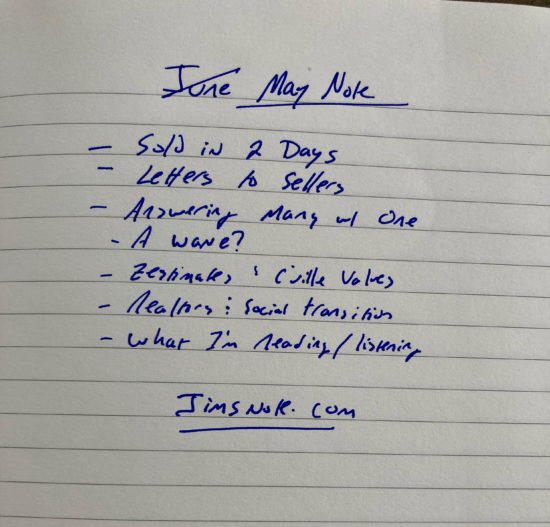 June May Note
- Sold in 2 Days
- Letters to Sellers
- Answering Many w/ One
- A wave?
- Zestimates & C'ville Values
- Realtors & Social transition
- What I'm Reading/listening
JimsNote.com